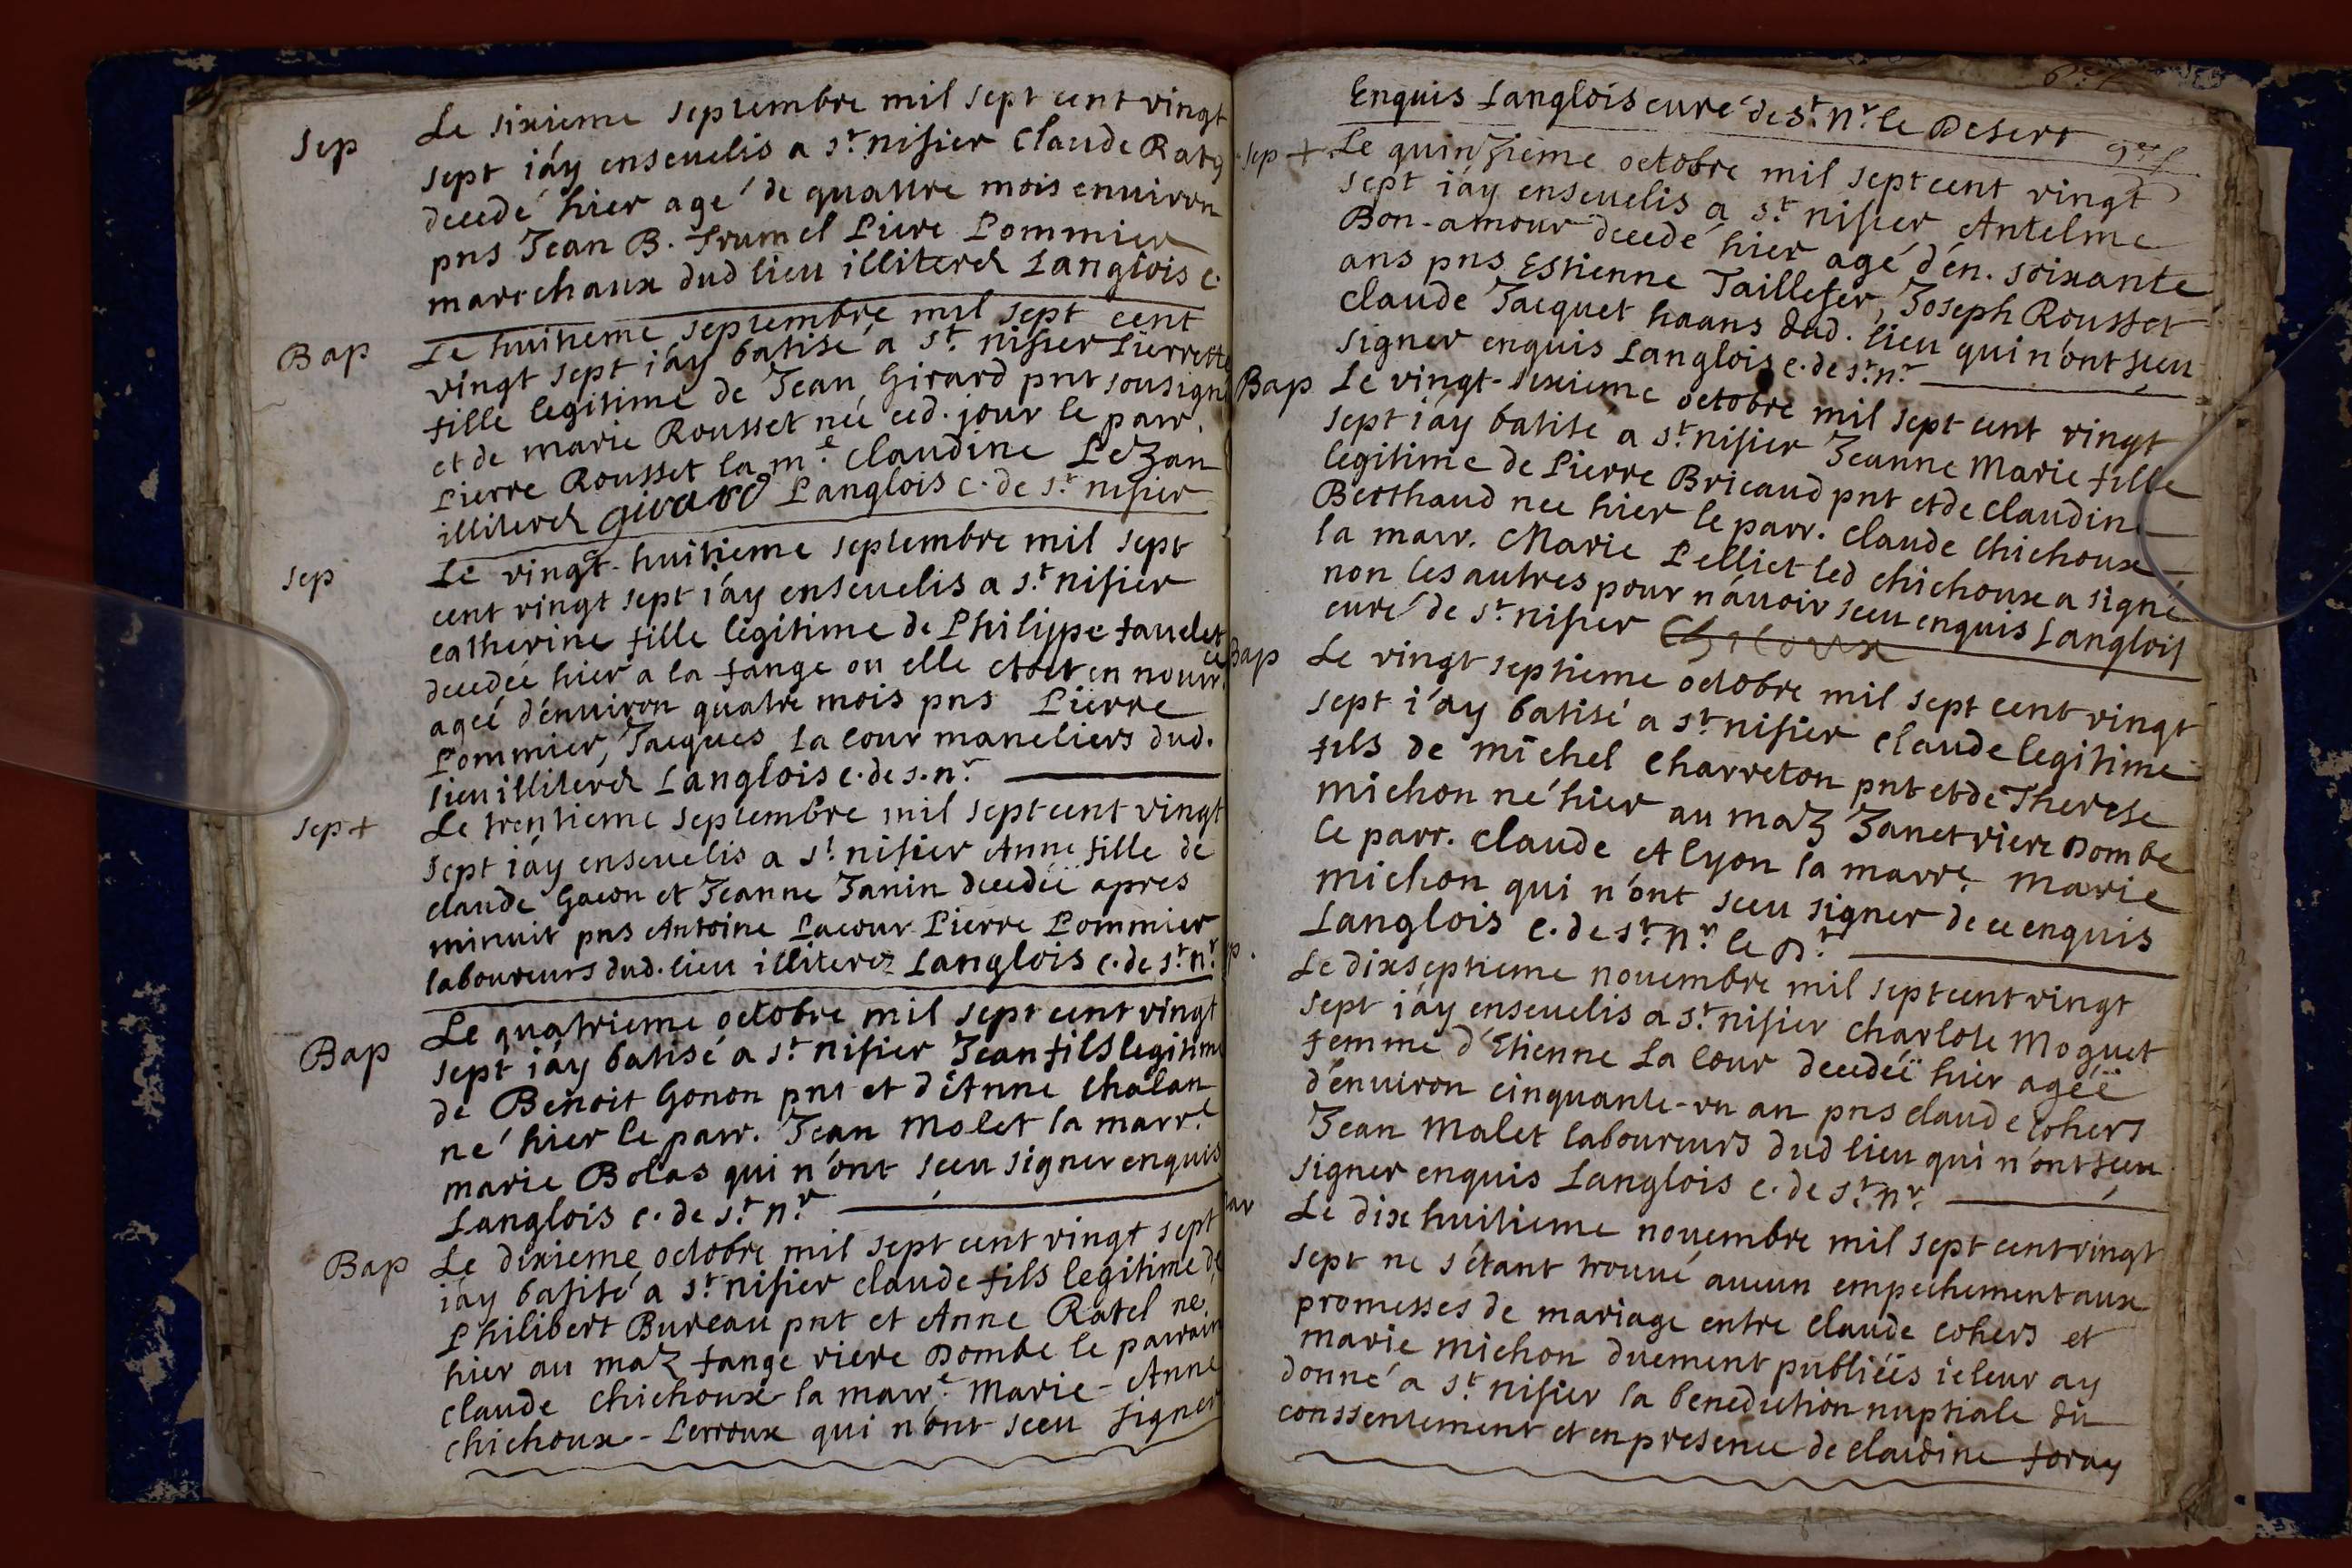 Sep
Le sixieme septembre mil sept cent vingt
sept i'ay enseuelis a st. nisier Claude Raty
decedé hier agé de quattre mois enuiron
pns Jean B. Trumel Pierre Pommier
marechaux dud lieu illiterez Langlois c.
Bap
Le huitieme septembre mil sept cent
vingt sept i'ay batisé a st. nisier Pierrette
fille legitime de Jean Girard pnt sousigné
et de marie Rousset née ced. jour le parr.
Pierre Rousset la m.e Claudine Pezan
illiterez girard Langlois c. de st nisier
Sep
Le vingt-huitieme septembre mil sept
cent vingt sept i'ay enseuelis a st. nisier
catherine fille legitime de Philippe faudet
decedée hier a la fange ou elle etoit en nourr.ce
ageé d'enuiron quatre mois pns Pierre
Pommier, Jacques La cour maneliers dud.
lieu illiterez Langlois c. de s. nr.
Sep +
Le trentieme septembre mil sept cent vingt
sept i'ay enseuelis a st. nisier Anne fille de
claude Gacon et Jeanne Janin decedeë apres
minuit pns Antoine Lacour Pierre Pommier
laboureurs dud. lieu illiterez Langlois c. de st. nr.
Bap
Le quatrieme octobre mil sept cent vingt
sept i'ay batisé a st nisier Jean fils legitime
de Benoit Gonon pnt et d'Anne Chalan
né hier le parr. Jean Molet la marr.e
marie Bolas qui n'ont sceu signer enquis
Langlois c. de st. nr.
Bap
Le dixieme octobre mil sept cent vingt sept
i'ay batisé a st nisier claude fils legitime de
Philibert Bureau pnt et Anne Ratel né
hier au maz fange riere Dombe le parrain
claude chichoux la marr.e Marie-Anne
chichoux-Perroux qui n'ont sceu signer
Enquis Langlois curé de st. nr. le Desert
Sep +
Le quinzieme octobre mil sept cent vingt
sept i'ay enseuelis a st. nisier Antelme
Bon-amour decedé hier agé d'en. soixante
ans pns Estienne Taillefer, Joseph Rousset
claude Jacquet haans dud. lieu qui n'ont sceu
signer enquis Langlois c. de st. nr.
Bap
Le vingt-sixieme octobre mil sept cent vingt
sept i'ay batisé a st nisier Jeanne Marie fille
legitime de Pierre Bricaud pnt et de claudine
Berthaud neé hier le parr. claude chichoux
la marr. Marie Pelliet led chichoux a signé
non les autres pour n'auoir sceu enquis Langlois
curé de st nisier
Bap
Le vingt septieme octobre mil sept cent vingt
sept i'ay batisé a st nisier claude legitime
fils de michel Charreton pnt et de Therese
michon né hier au maz Janet riere Dombe
le parr. claude Alyon la marr.e Marie
michon qui n'ont sceu signer de ce enquis
Langlois c. de st. nr. le Dt.
p.
Le dixseptieme nouembre mil sept cent vingt
sept i'ay enseuelis a st. nisier charlote Moguet
femme d'Etienne La Cour decedeë hier ageë
d'enuiron cinquante-vn an pns claude cohers
Jean Malet laboureurs dud lieu qui n'ont sceu
signer enquis Langlois c. de st. nr.
ar
Le dix huitieme nouembre mil sept cent vingt
sept ne s'étant trouué aucun empechement aux
promesses de mariage entre claude cohers et
marie michon duement publiéës ie leur ay
donné a st. nisier la benediction nuptiale du
conssentement et en presence de claudine foray